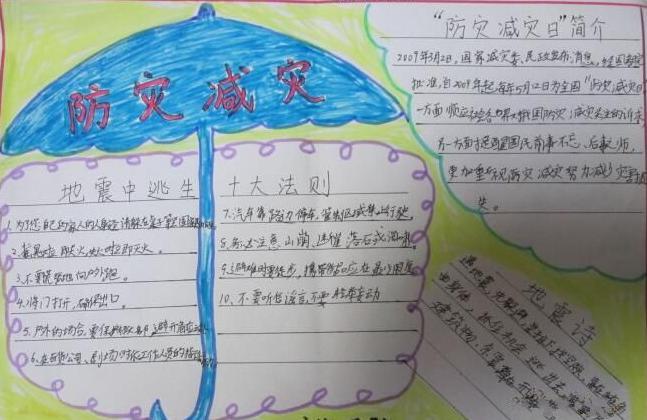 防灾减灾
"防灾减灾日"简介
2009年3月2日，国家减灾委、民政部发布消息，经国务院
批准，自2009年起每年5月12日为全国"防灾减灾日
一方面顺应社会各界对我国防灾减灾关注的诉求
另一方面提醒国民前事不忘、后事之师，
更加重视防灾减灾努力减少灾害损
失。
地震中逃生十大法则
1.为了您自己和家人的人身安全请躲在桌子等坚固家具
2.摇晃时立即关火失火时立即灭火。
3.不要慌张地向户外跑。
4.将门打开，确保出口。
5.户外的场合，要保护好头部避开危险
6.在百货公司、剧场时依工作人员的指示
7.汽车靠路边停车，管制区域禁止行驶
8.务必注意山崩、断崖落石或海啸。
9.避难时要徒步，携带物品应在最少限度
10、不要听信谣言，不要轻举妄动
地震诗